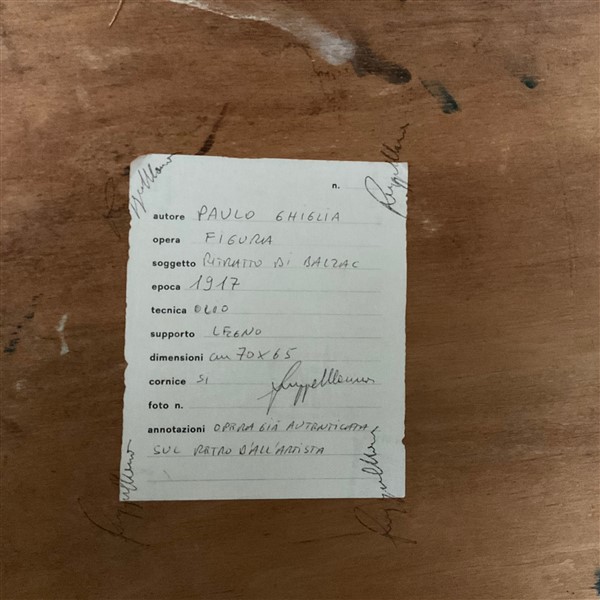 n.
autore PAULO GHIGLIA
opera FIGURA
soggetto RITRATTO DI BALZAC
epoca 1917
tecnica OLIO
supporto LEGNO
dimensioni cm 70x65
cornice SI
foto n.
annotazioni OPERA GIÀ AUTENTICATA
SUL RETRO D'ALL'ARTISTA